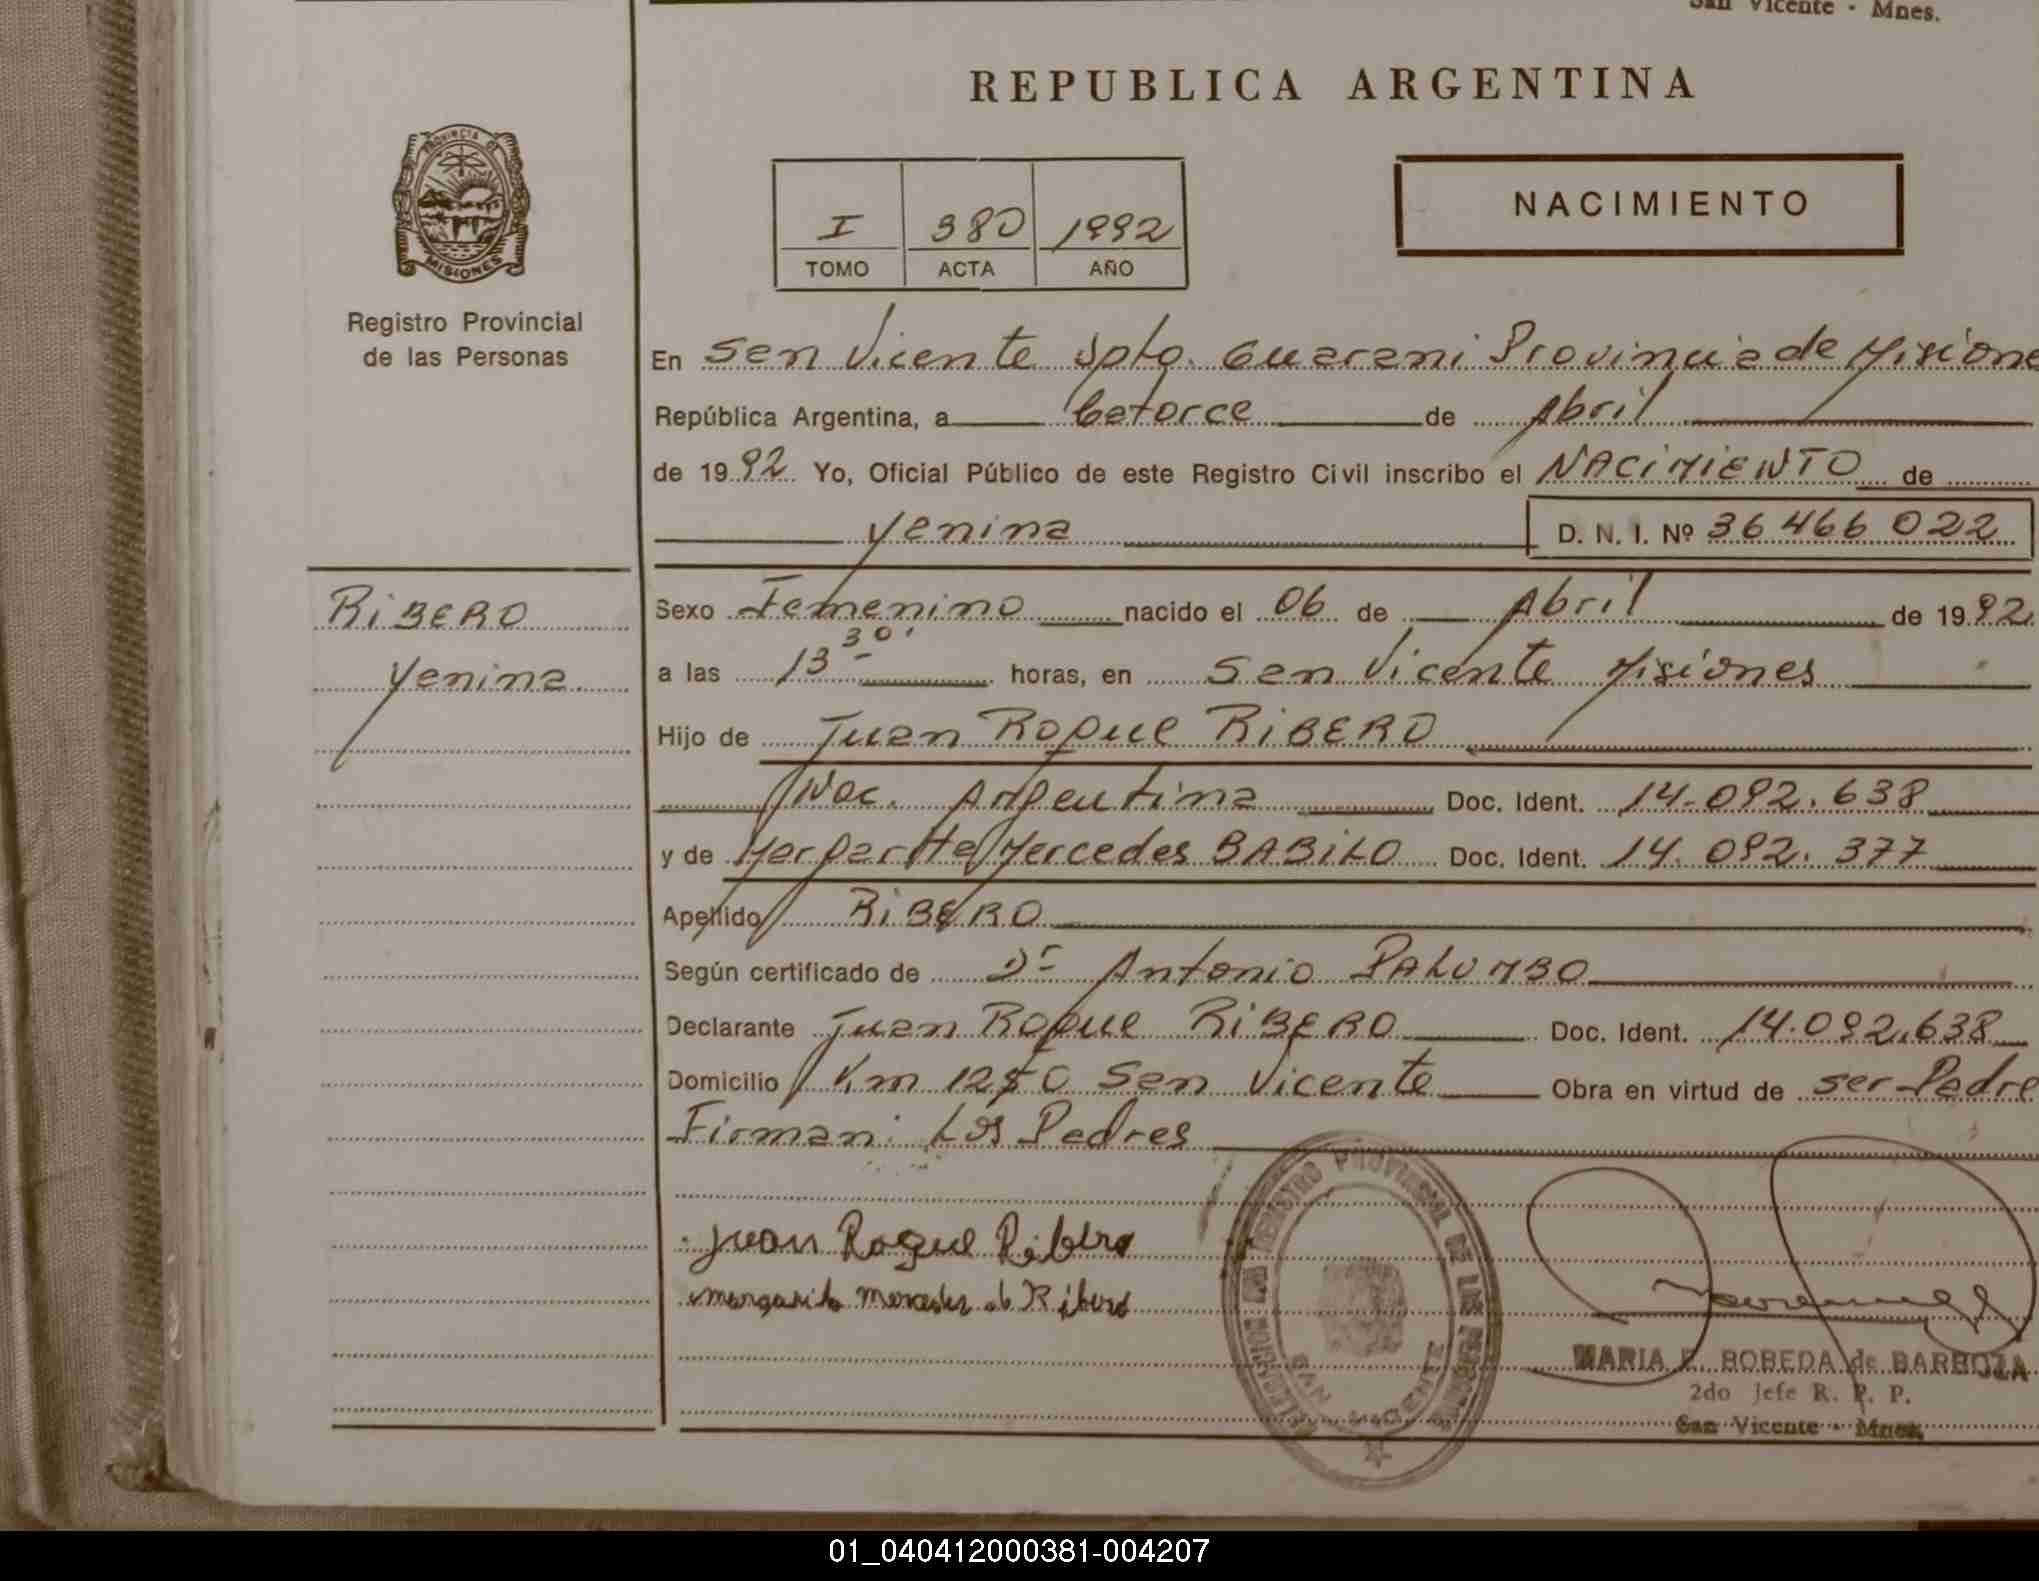 San Vicente - Mnes.
REPUBLICA ARGENTINA
PROVINCIA DE
MISIONES
Registro Provincial
de las Personas
I 380 1992
TOMO ACTA AÑO
NACIMIENTO
En San Vicente Dpto. Guarani Provincia de Misione
República Argentina, a Catorce de Abril
de 1992 Yo, Oficial Público de este Registro Civil inscribo el NACIMIENTO de
Yenina D. N. I. Nº 36466022
RIBERO
Yenina
Sexo Femenino nacido el 06 de Abril de 1992
a las 13 30' horas, en San Vicente Misiones
Hijo de Juan Roque RIBERO
Nac. Argentina Doc. Ident. 14.092.638
y de Margaritte Mercedes BABILO Doc. Ident. 14.092.377
Apellido RIBERO
Según certificado de Dr Antonio PALUMBO
Declarante Juan Roque RIBERO Doc. Ident. 14.092.638
Domicilio Km 1250 San Vicente Obra en virtud de ser Padre
Firman: Los Padres
Juan Roque Ribero
margarita mercedes de Ribero
REGISTRO PROVINCIAL DE LAS PERSONAS
SAN VICENTE
MARIA E. BOBEDA de BARBOZA
2do Jefe R. P. P.
San Vicente - Mnes.
01_040412000381-004207